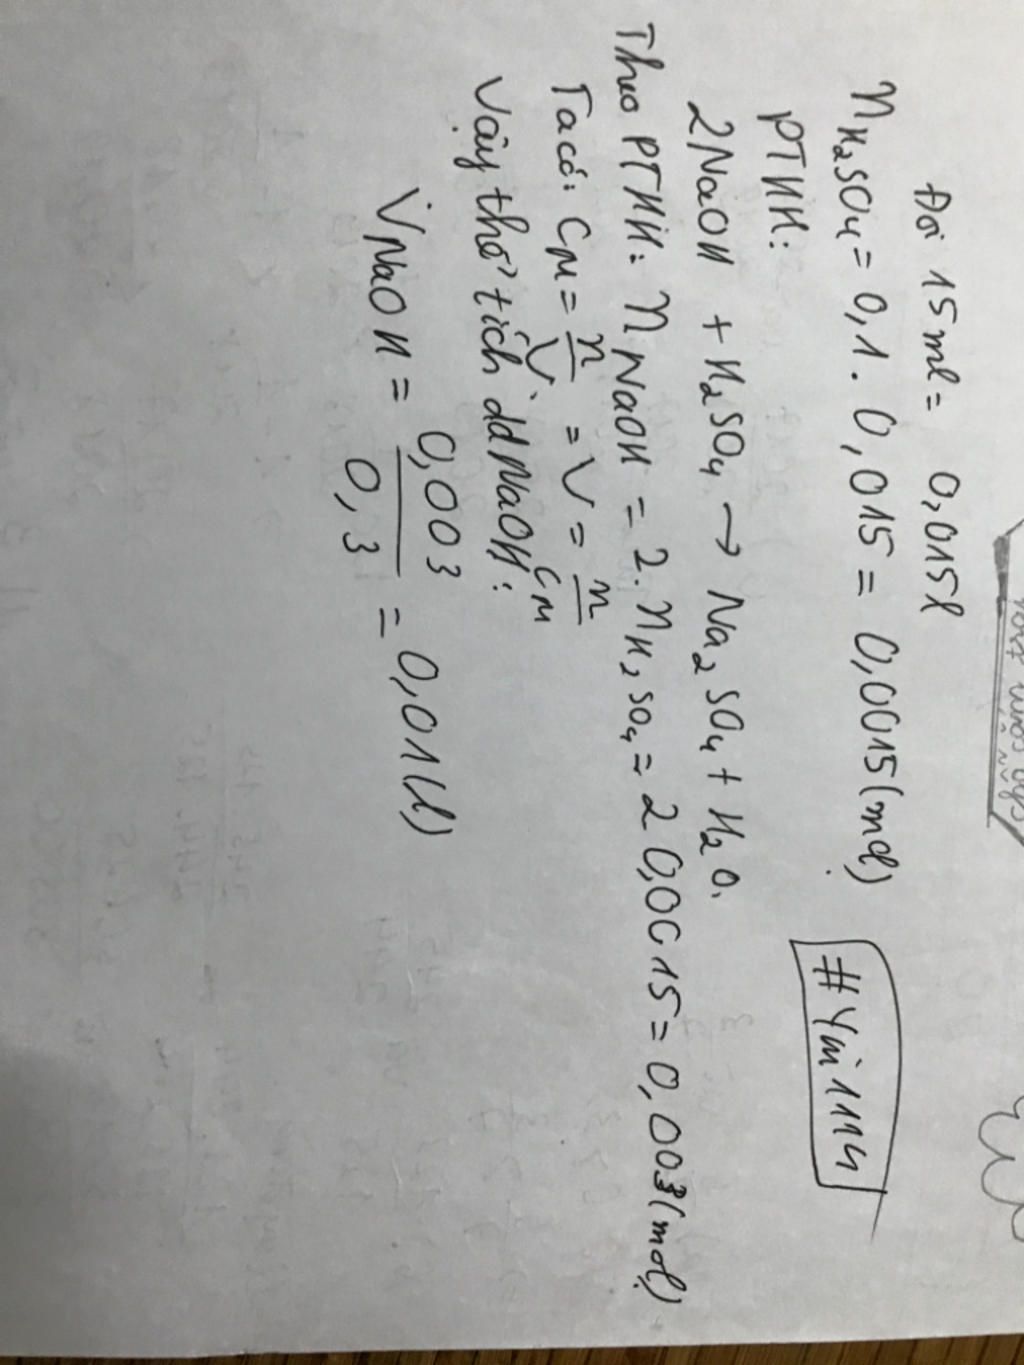 Đổi 15ml = 0,015l
nH₂SO₄ = 0,1 . 0,015 = 0,0015 (mol)
#Ymi1114
PTHH:
2NaOH + H₂SO₄ → Na₂SO₄ + H₂O.
Theo PTHH: nNaOH = 2. nH₂SO₄ = 2 0,0015 = 0,003 (mol)
Ta có: CM = n/V = V = n/CM
Vậy thể tích dd NaOH:
VNaOH = 0,003/0,3 = 0,01 (l)